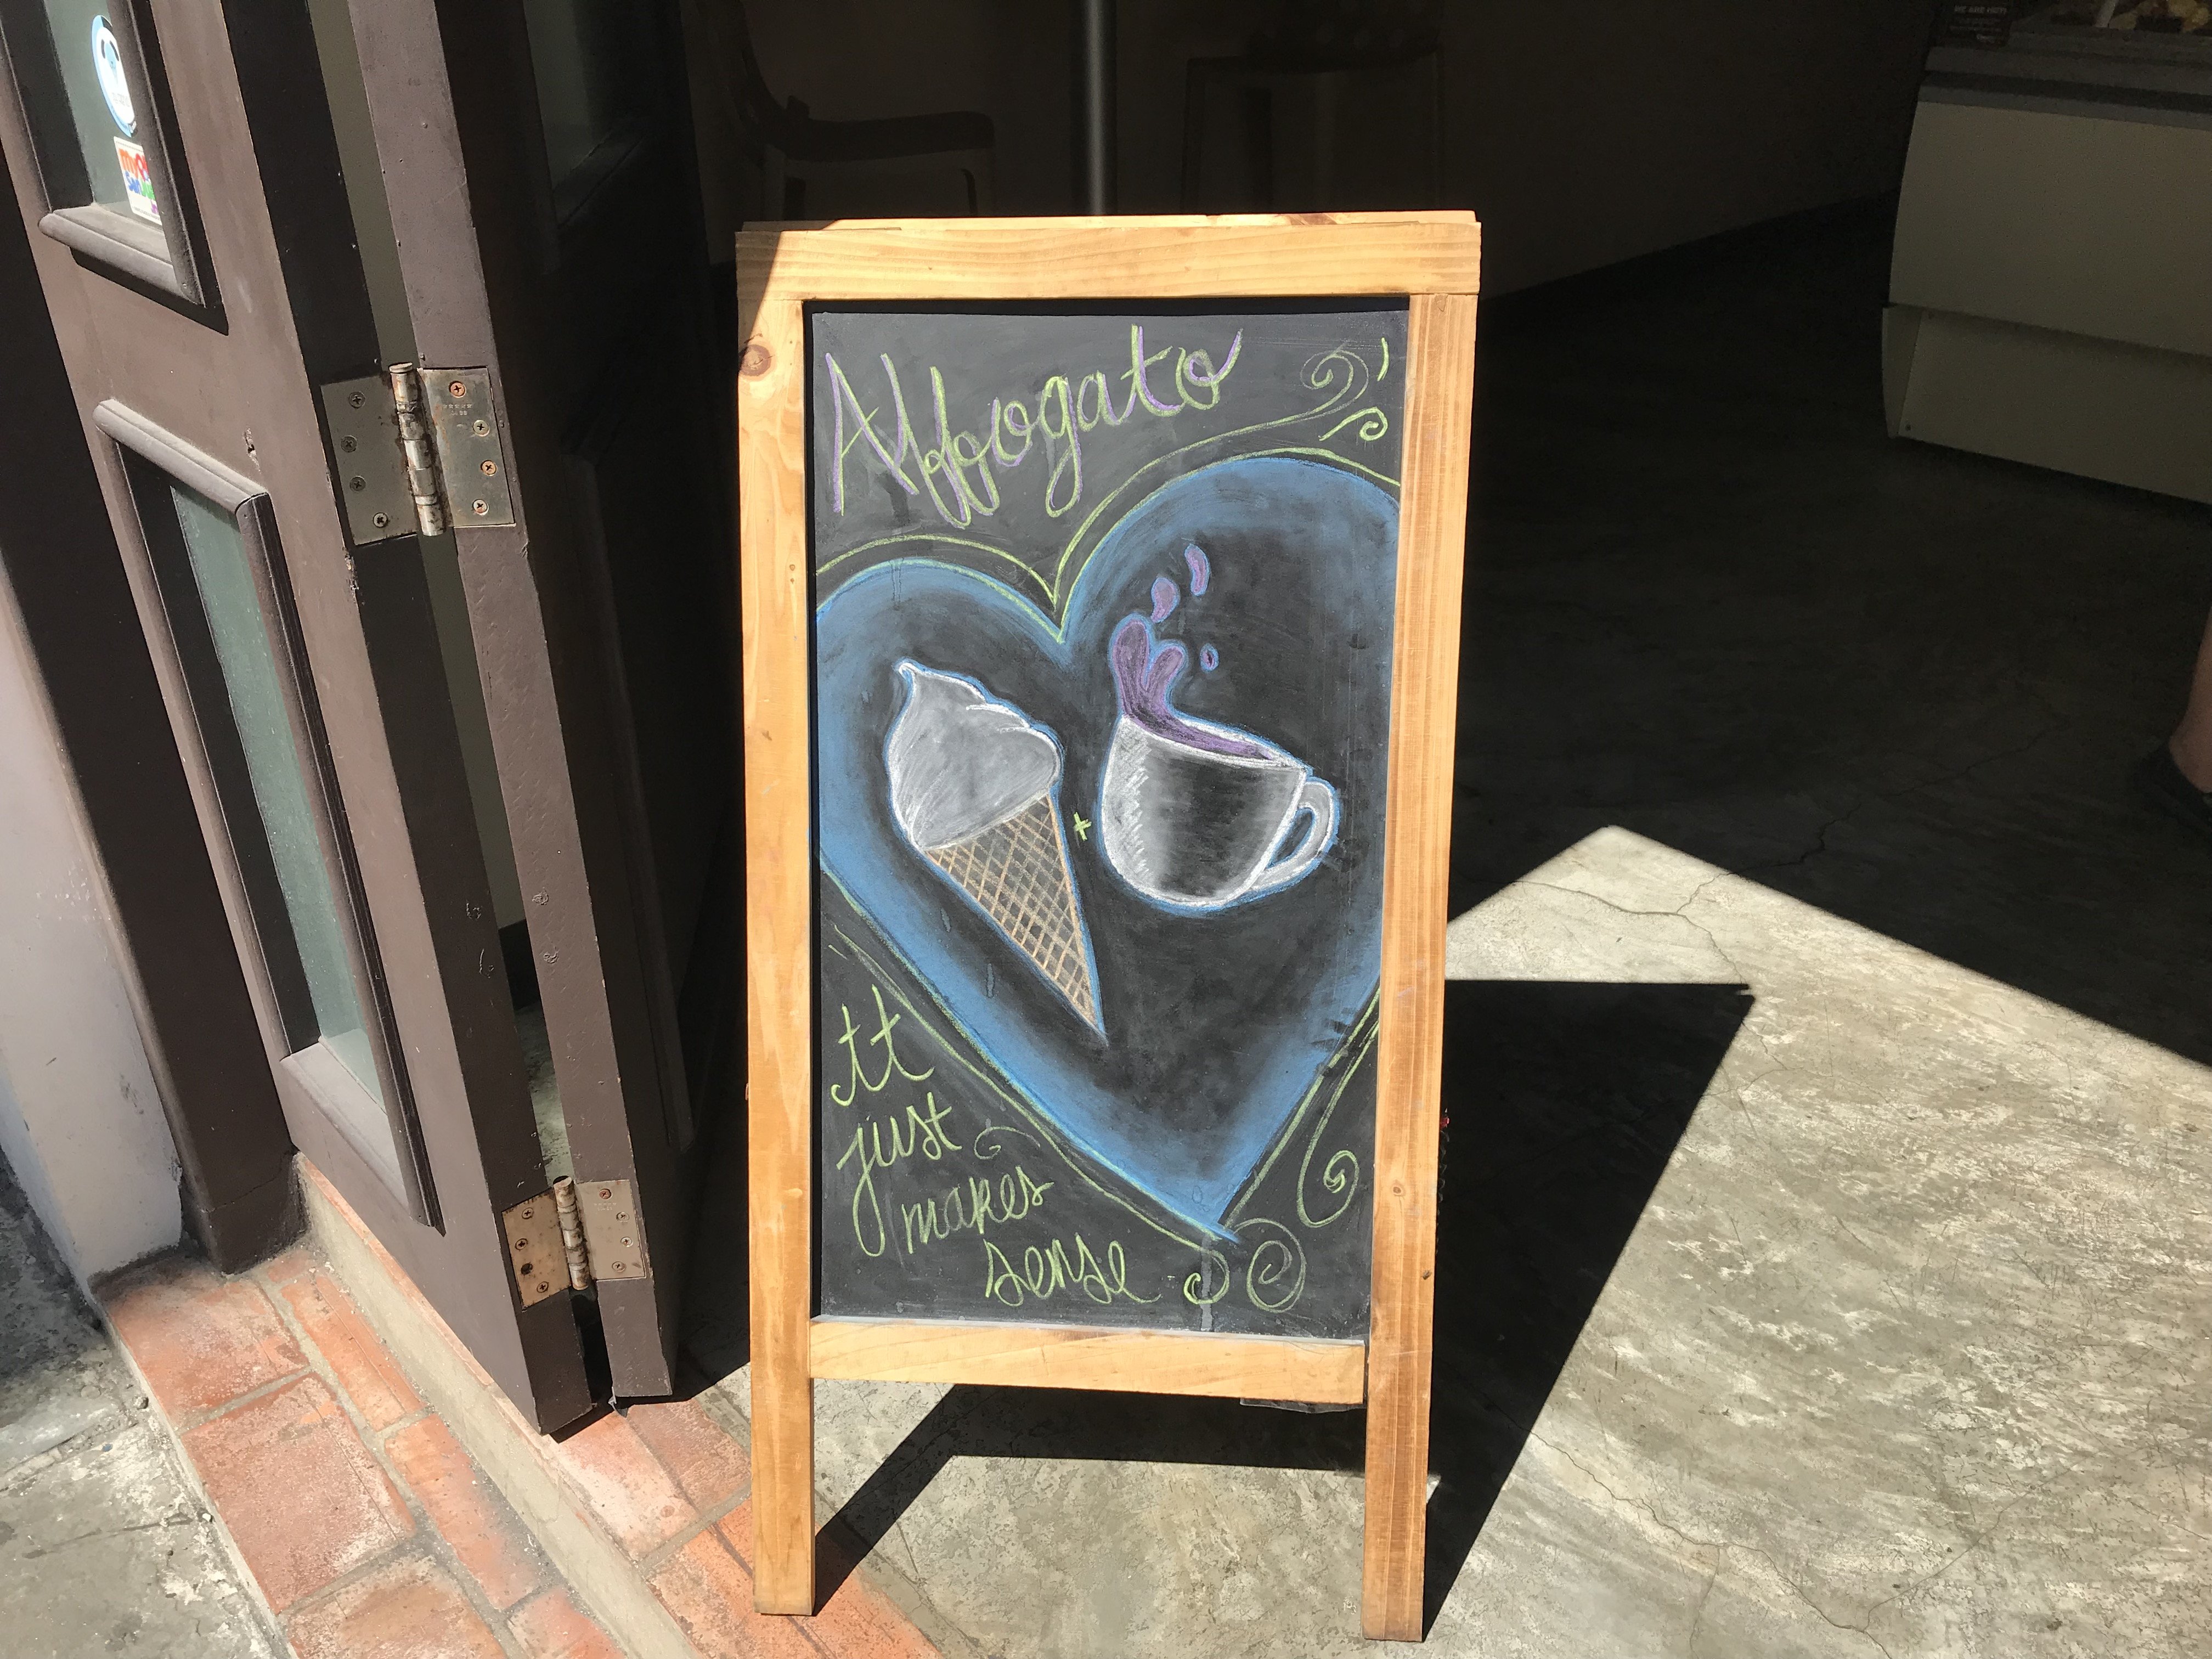 Affogato
+
it
just
makes
sense